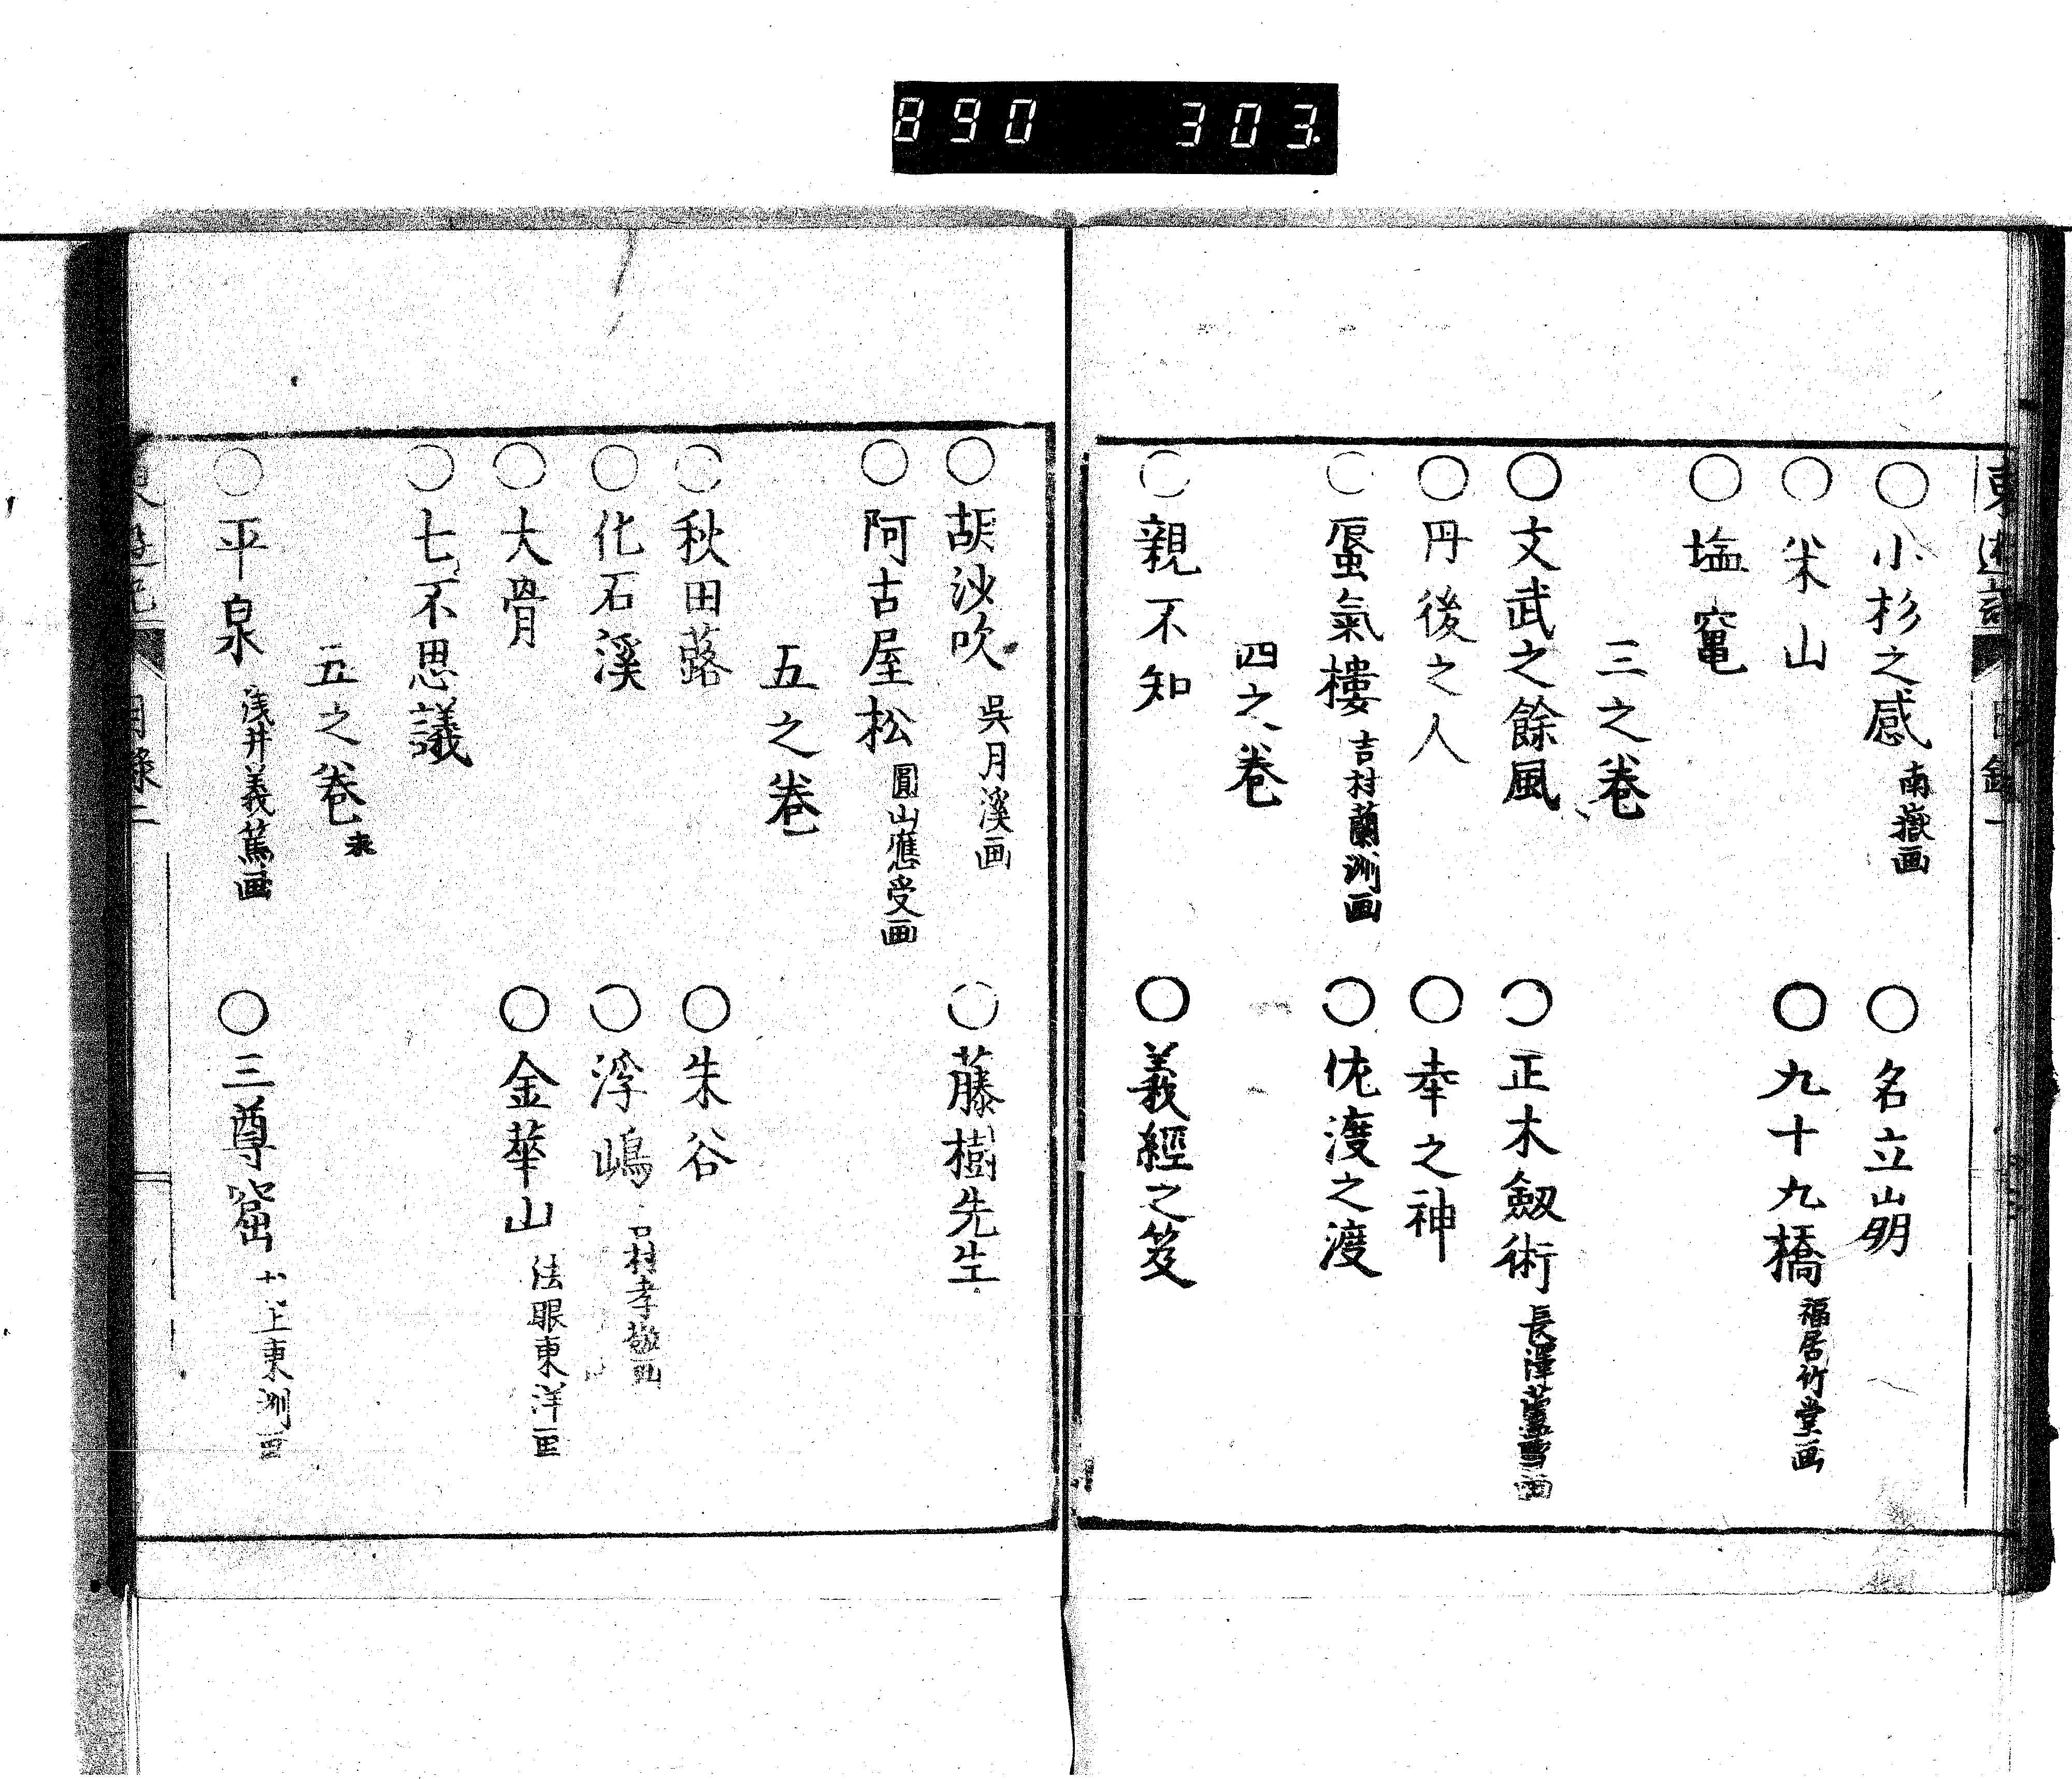 890 303.
○小杉之感 南嶽画 ○名立崩
○米山 ○九十九橋 福居竹堂画
○塩竃
三之巻
○文武之餘風 ○正木劔術 長澤蘆雪画
○丹後之人 ○幸之神
○蜃氣樓 吉村蘭洲画 ○佐渡之渡
四之巻
○親不知 ○義經之笈
○胡沙吹 呉月溪画 ○藤樹先生
○阿古屋松 圓山應受画
五之巻
○秋田蕗 ○朱谷
○化石溪 ○浮嶋 村孝敬画
○大骨 ○金華山 法眼東洋画
○七不思議
五之巻 末
○平泉 浅井義篤画 ○三尊窟 上東洲画